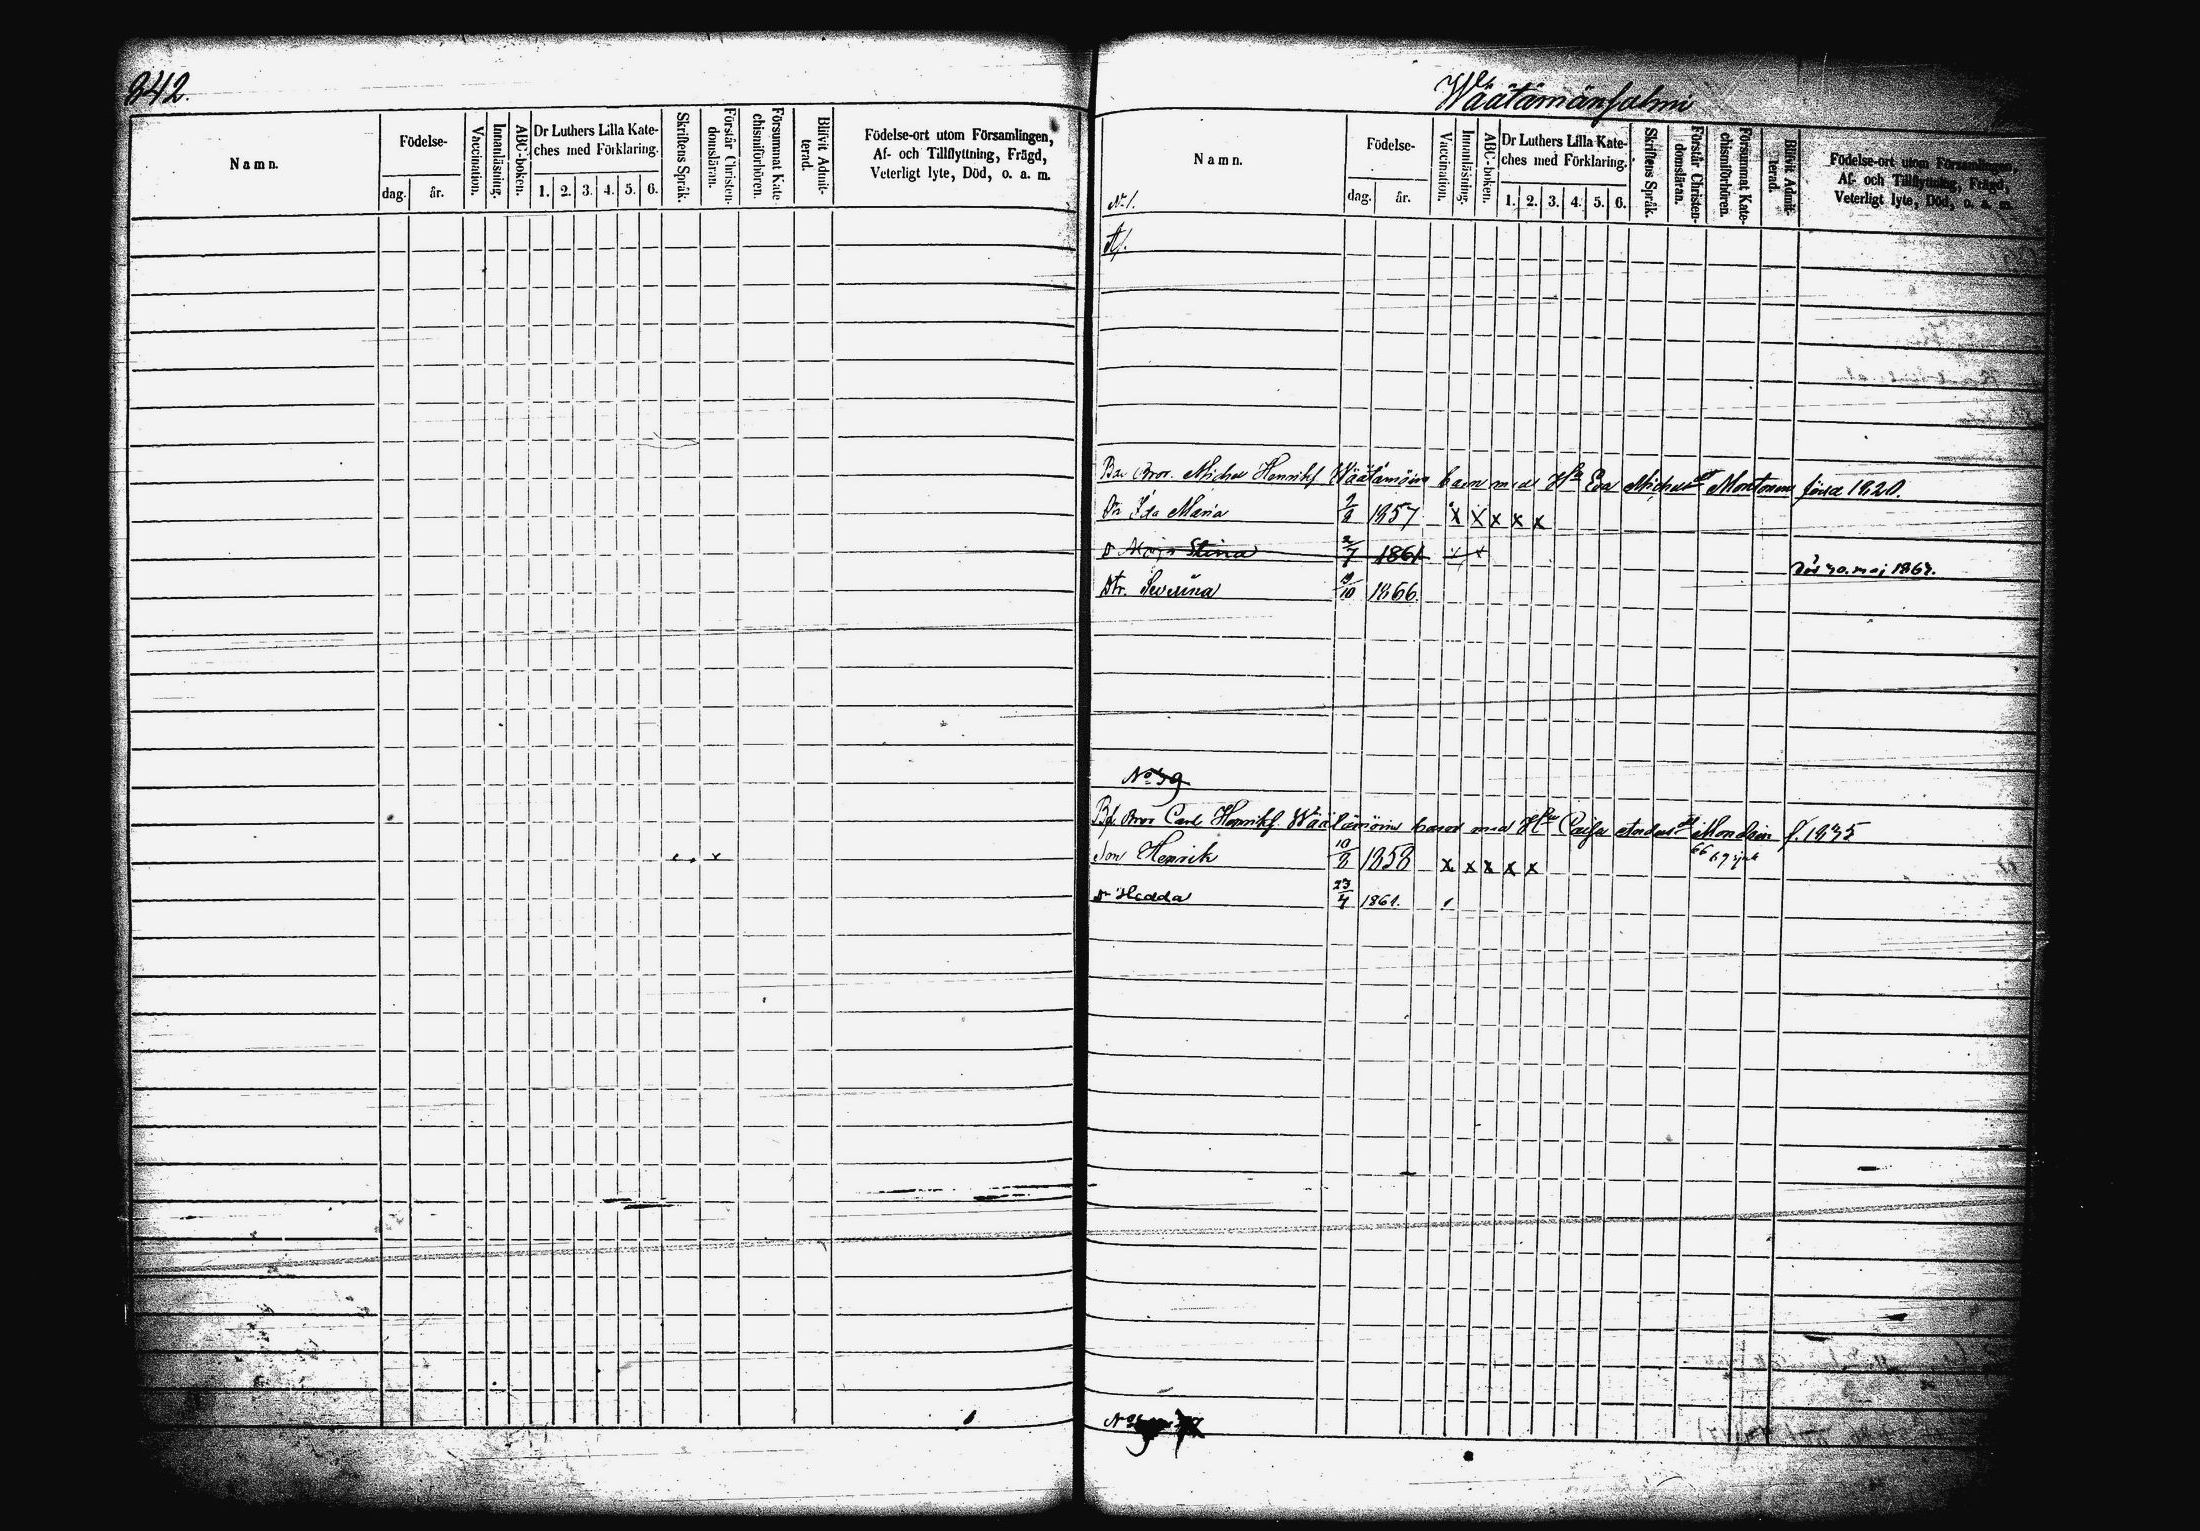 342.
Namn.
Födelse-
dag.
år.
Vaccination.
Innanläsning.
ABC-boken.
Dr Luthers Lilla Kate-
ches med Förklaring.
1. 2. 3. 4. 5. 6.
Skriftens Språk.
Förstår Christen-
domsläran.
Försummat Kate-
chismiförhören.
Blifvit Admit-
terad.
Födelse-ort utom Församlingen,
Af- och Tillflyttning, Frägd,
Veterligt lyte, Död, o. a. m.
Wäätämänsalmi
Namn.
Födelse-
dag.
år.
Vaccination.
Innanläsning.
ABC-boken.
Dr Luthers Lilla Kate-
ches med Förklaring.
1. 2. 3. 4. 5. 6.
Skriftens Språk.
Förstår Christen-
domsläran.
Försummat Kate-
chismiförhören.
Blifvit Admit-
terad.
Födelse-ort utom Församlingen,
Af- och Tillflyttning, Frägd,
Veterligt lyte, Död, o. a. m.
No 1.
Bror. Michel Henrikss Wäätämöins barn med Eva Michelsdr född 1820.
Dr Ida Maria 9/8 1857 x x x x x
D Maja Stina 2/7 1861 x x
Död 30. maj 1863.
Dtr. Severina 9/10 1866.
No 39
Bror Carl Henrikss Wäätämöins barn med Caisa f. 1835
66 67 sjuk
Son Henrik 10/8 1858 x x x x x
Dr Hedda 23/4 1861.